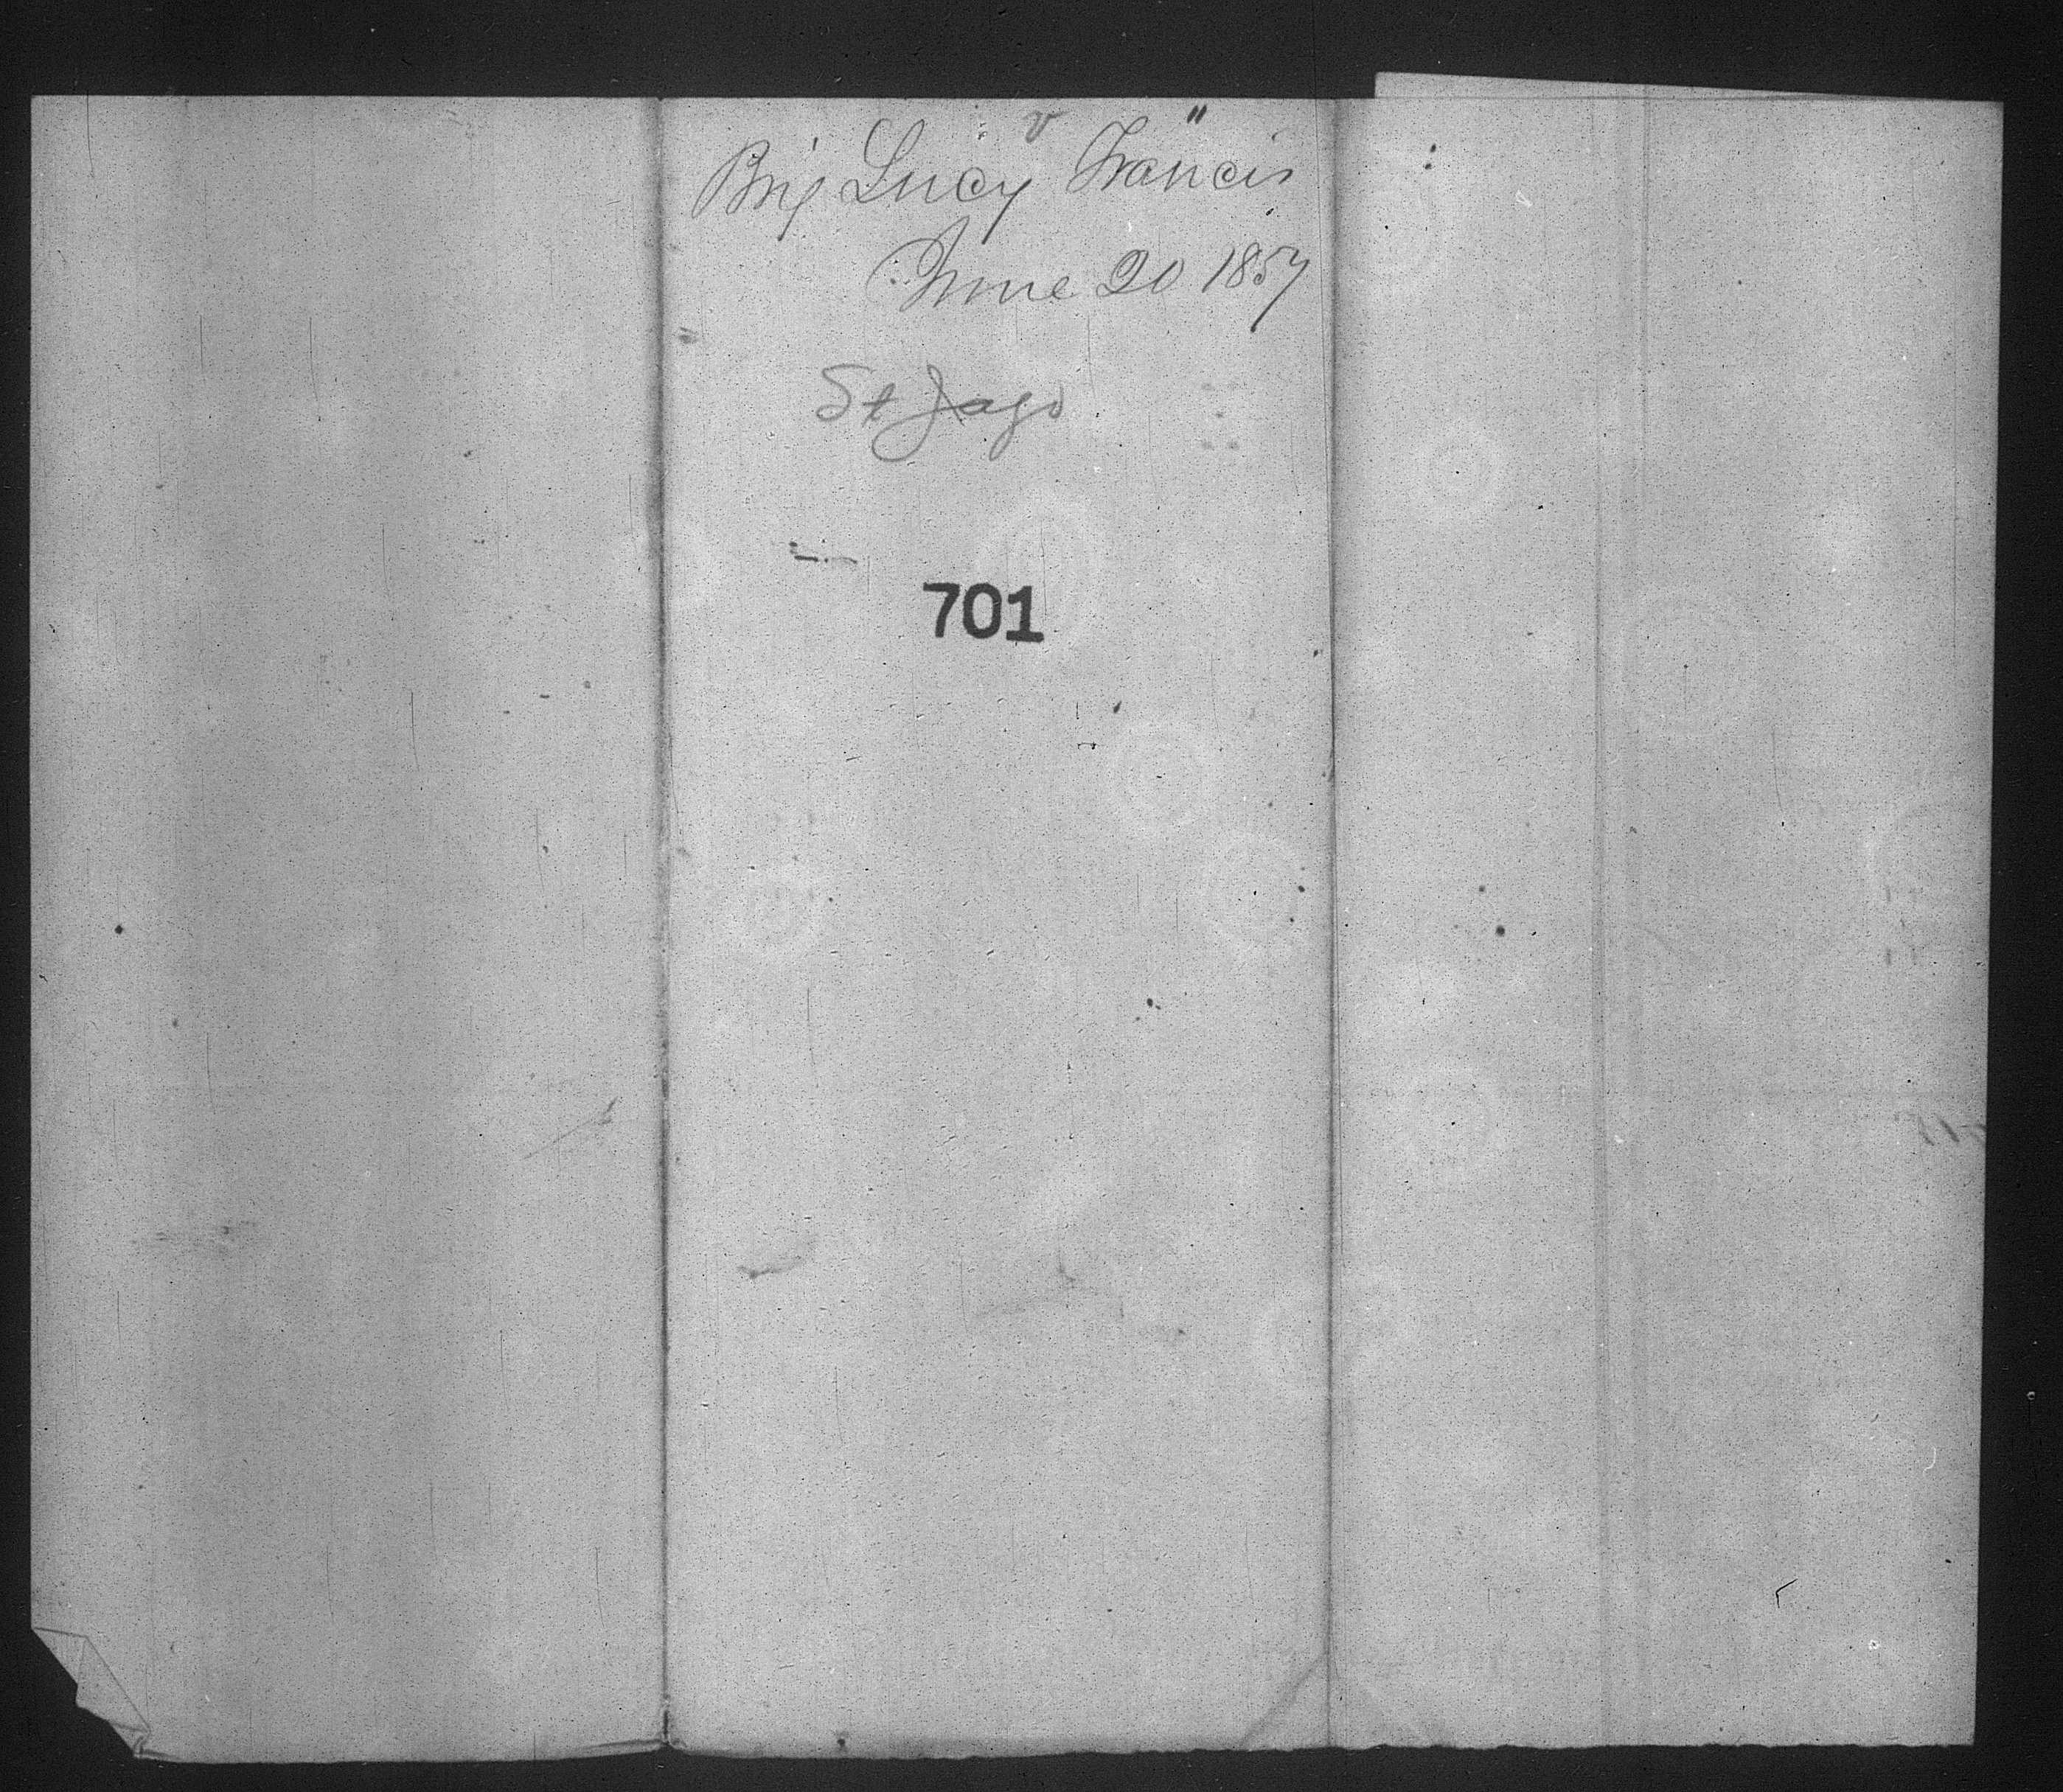 Brig Lucy Francis
June 20 1857
St Jago
701